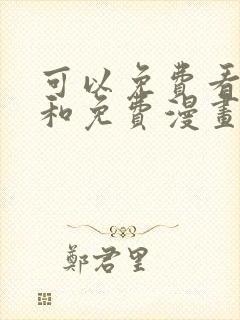 可以免费看
和免费漫畫
鄭君里